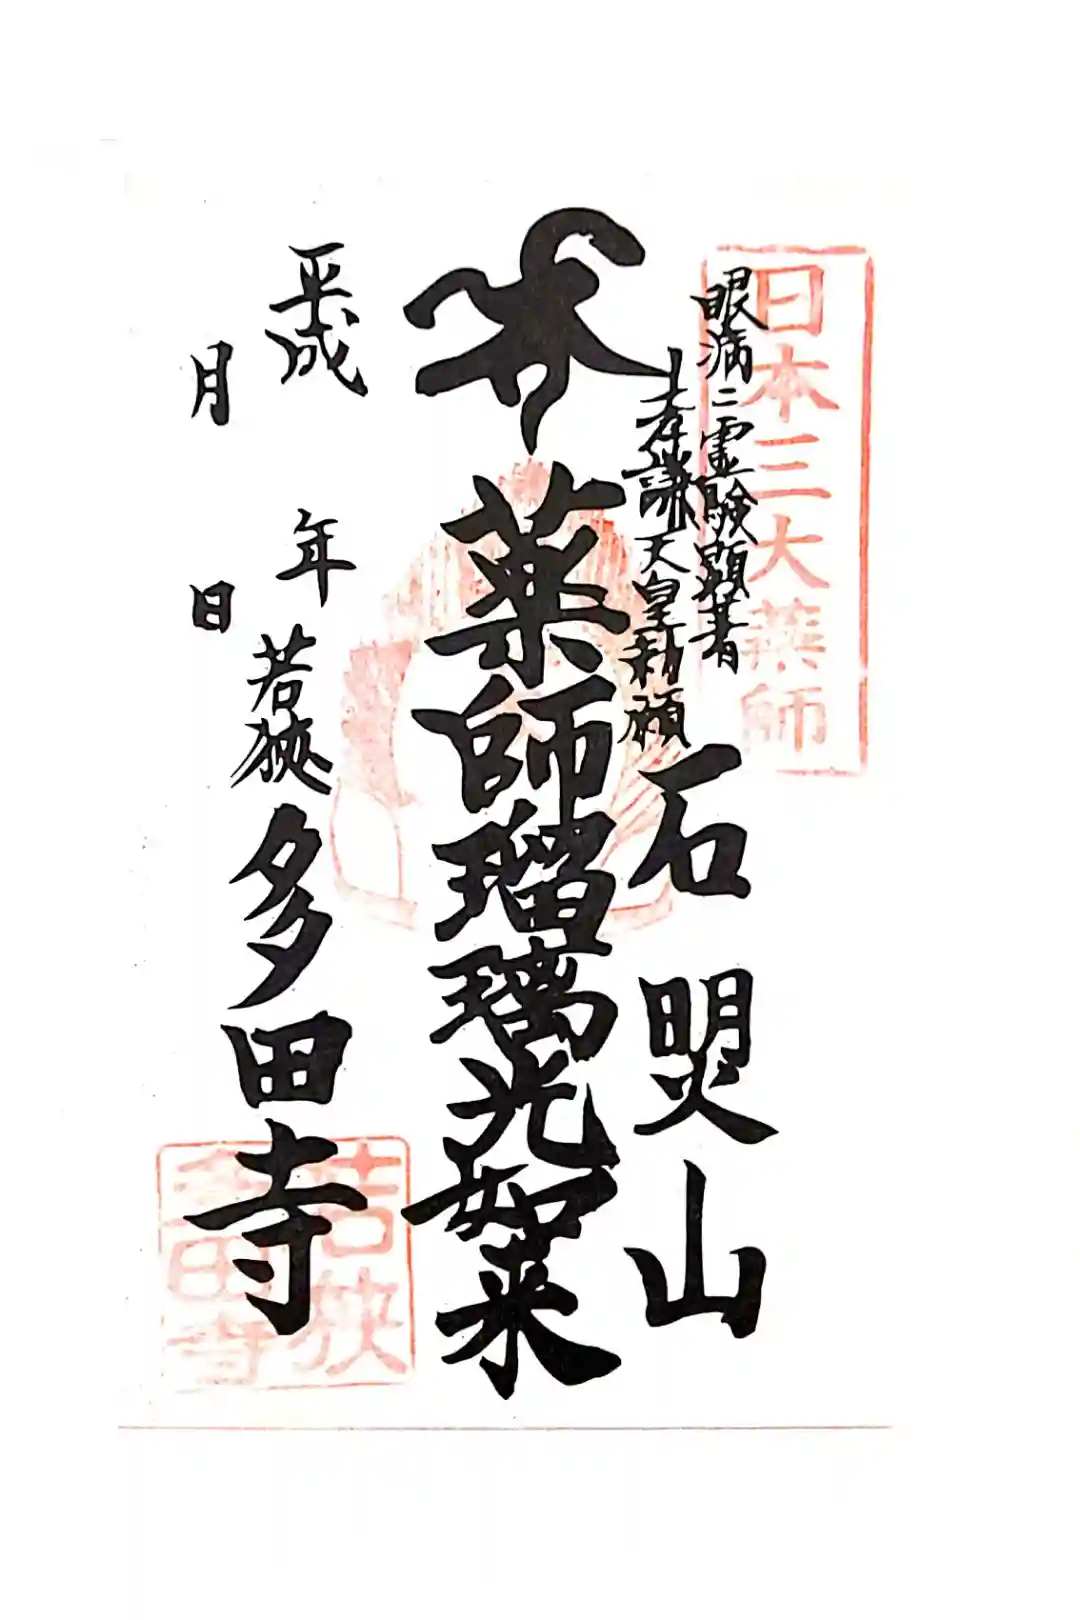 日本三大薬師
眼病ニ霊験顕著
孝謙天皇勅願
石照山
薬師瑠璃光如来
平成 年
月 日
若狭多田寺
若狭
多田寺